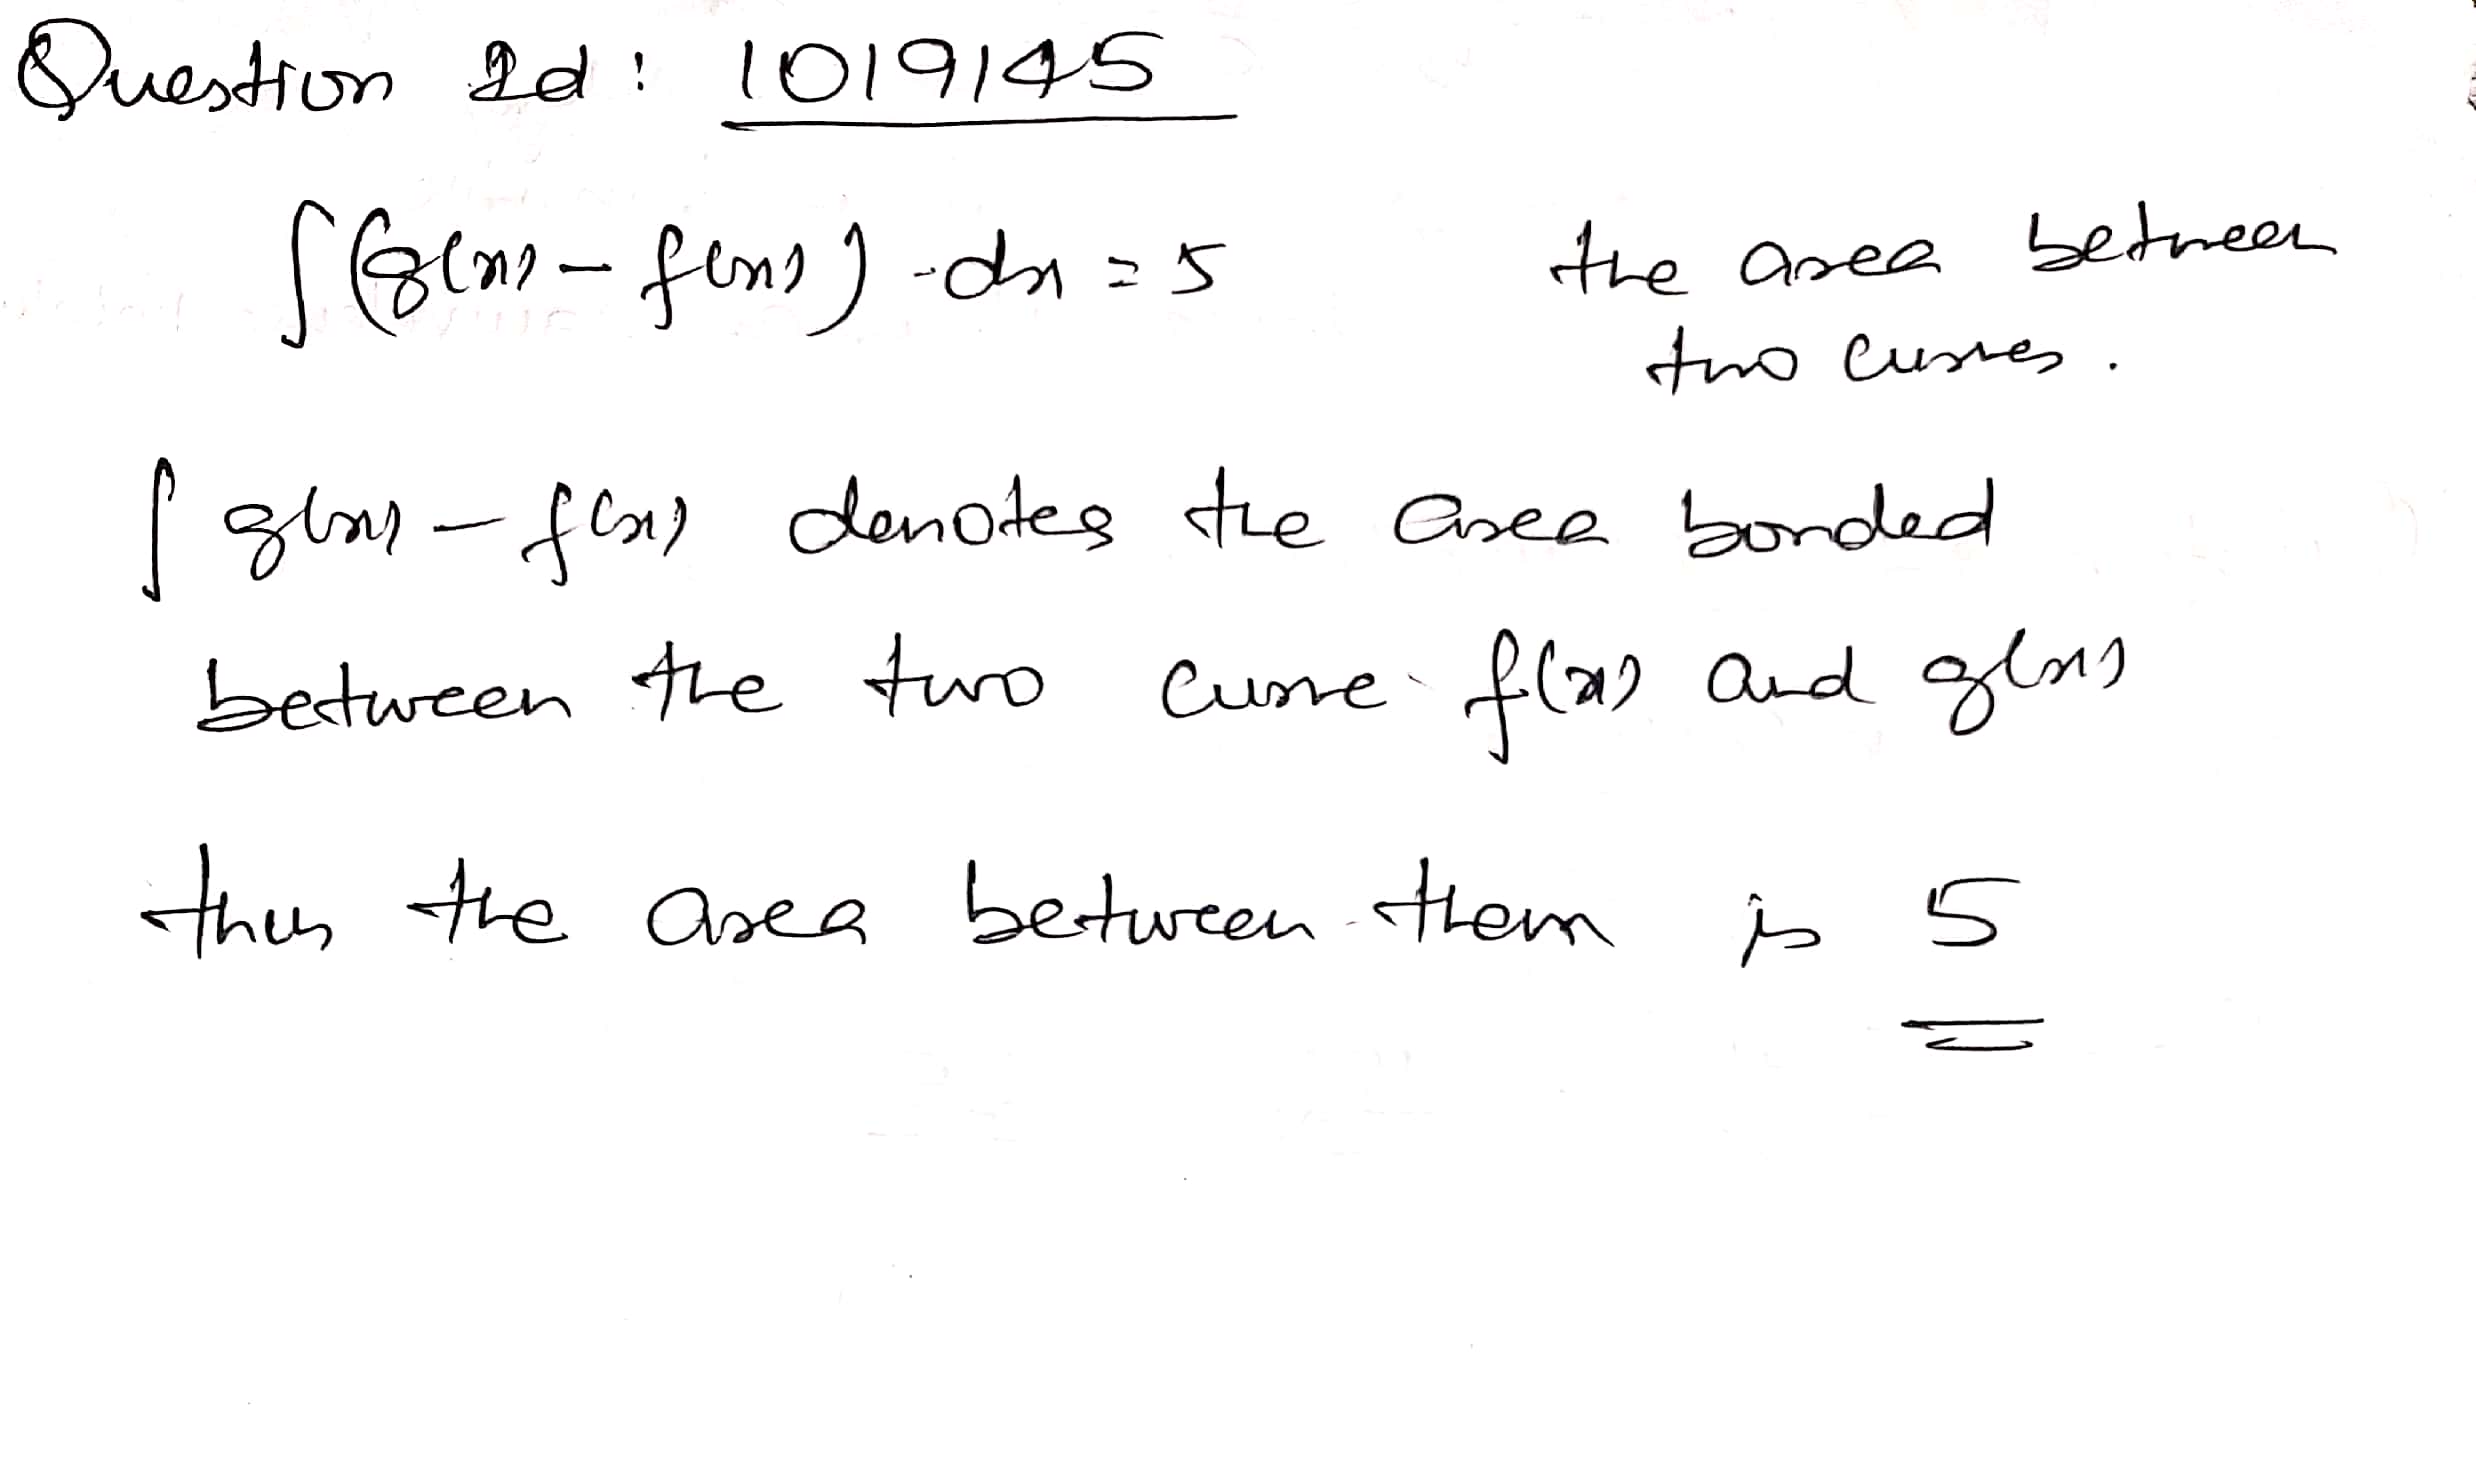 Question Id : 1019145
∫(g(x) - f(x)) · dx = 5 the area between
two curves.
∫ g(x) - f(x) denotes the area bonded
between the two curve f(x) and g(x)
thus the area between them is 5